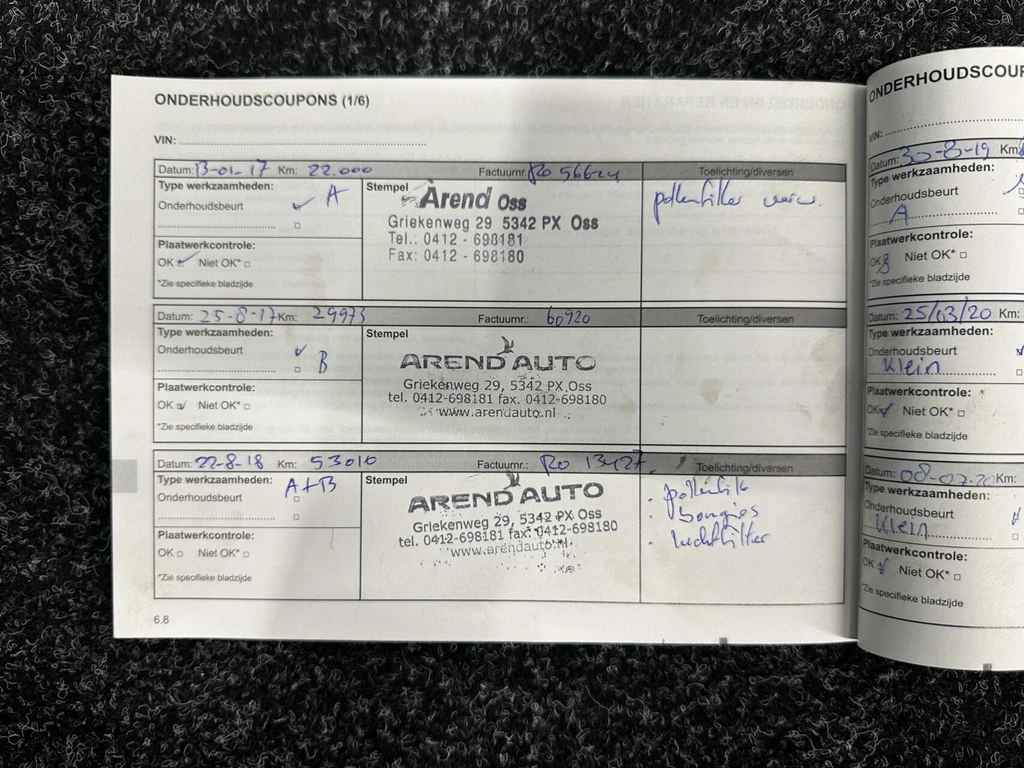 ONDERHOUDSCOUPONS (1/6)
VIN:
Datum: 13-01-17 Km: 22.000 Factuurnr.: Ro 56624 Toelichting/diversen
Type werkzaamheden: A
Onderhoudsbeurt
Stempel
Arend Oss
Griekenweg 29 5342 PX Oss
Tel.: 0412 - 698181
Fax: 0412 - 698180
pollenfilter verv.
Plaatwerkcontrole:
OK Niet OK*
*Zie specifieke bladzijde
Datum: 25-8-17 Km: 29973 Factuurnr.: 60920 Toelichting/diversen
Type werkzaamheden:
Onderhoudsbeurt
B
Stempel
AREND AUTO
Griekenweg 29, 5342 PX Oss
tel. 0412-698181 fax. 0412-698180
www.arendauto.nl
Plaatwerkcontrole:
OK Niet OK*
*Zie specifieke bladzijde
Datum: 22-8-18 Km: 53010 Factuurnr.: Ro 13427 Toelichting/diversen
Type werkzaamheden: A+B
Onderhoudsbeurt
Stempel
AREND AUTO
Griekenweg 29, 5342 PX Oss
tel. 0412-698181 fax. 0412-698180
www.arendauto.nl
- pollenfilt
- bougies
- luchtfilter
Plaatwerkcontrole:
OK Niet OK*
*Zie specifieke bladzijde
6.8
ONDERHOUDSCOUP
VIN:
Datum: 30-8-19 Km:
Type werkzaamheden:
Onderhoudsbeurt
A
Plaatwerkcontrole:
OK Niet OK*
*Zie specifieke bladzijde
Datum: 25/03/20 Km:
Type werkzaamheden:
Onderhoudsbeurt
Klein
Plaatwerkcontrole:
OK Niet OK*
*Zie specifieke bladzijde
Datum: Km:
Type werkzaamheden:
Onderhoudsbeurt
Klein
Plaatwerkcontrole:
OK Niet OK*
*Zie specifieke bladzijde